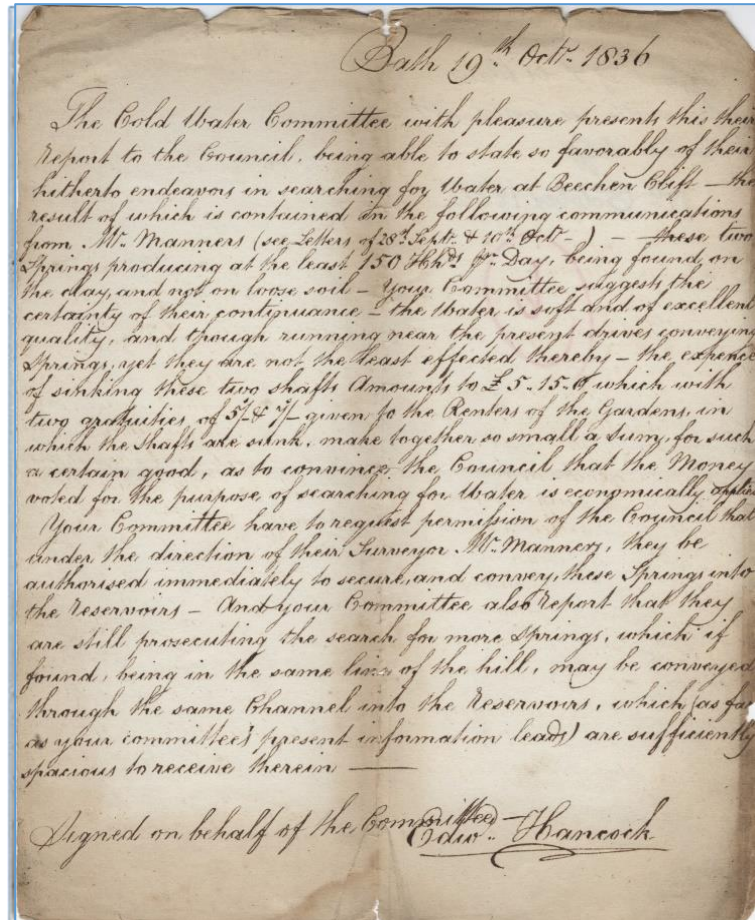 Bath 19th Octr. 1836
The Cold Water Committee with pleasure presents this their
Report to the Council, being able to state so favorably of their
hitherto endeavors in searching for Water at Beechen Clift — the
result of which is contained in the following communications
from Mr. Manners (see Letters of 28th Sept. & 10th Octr. – ) — these two
Springs producing at the least 150 Hhds. pr. Day, being found, on
the clay, and not on loose soil – Your Committee suggest the
certainty of their continuance – the Water is soft and of excellent
quality, and though running near the present drives conveying
Springs, yet they are not the least effected thereby – the expence
of sinking these two shafts Amounts to £5.15.0 which with
two gratuities of 5/- & 7/- given to the Renters of the Gardens, in
which the Shafts are sunk, make together so small a Sum, for such
a certain good, as to convince the Council that the Money
voted for the purpose of searching for Water is economically applied
Your Committee have to request permission of the Council that
under the direction of their Surveyor Mr. Manners, they be
authorised immediately to secure, and convey, these Springs into
the Reservoirs – And your Committee also Report that they
are still prosecuting the search for more Springs, which if
found, being in the same line of the hill, may be conveyed
through the same Channel into the Reservoirs, which (as far
as your committee's present information leads) are sufficiently
spacious to receive therein —
Signed on behalf of the Committee –
Edwd. Hancock